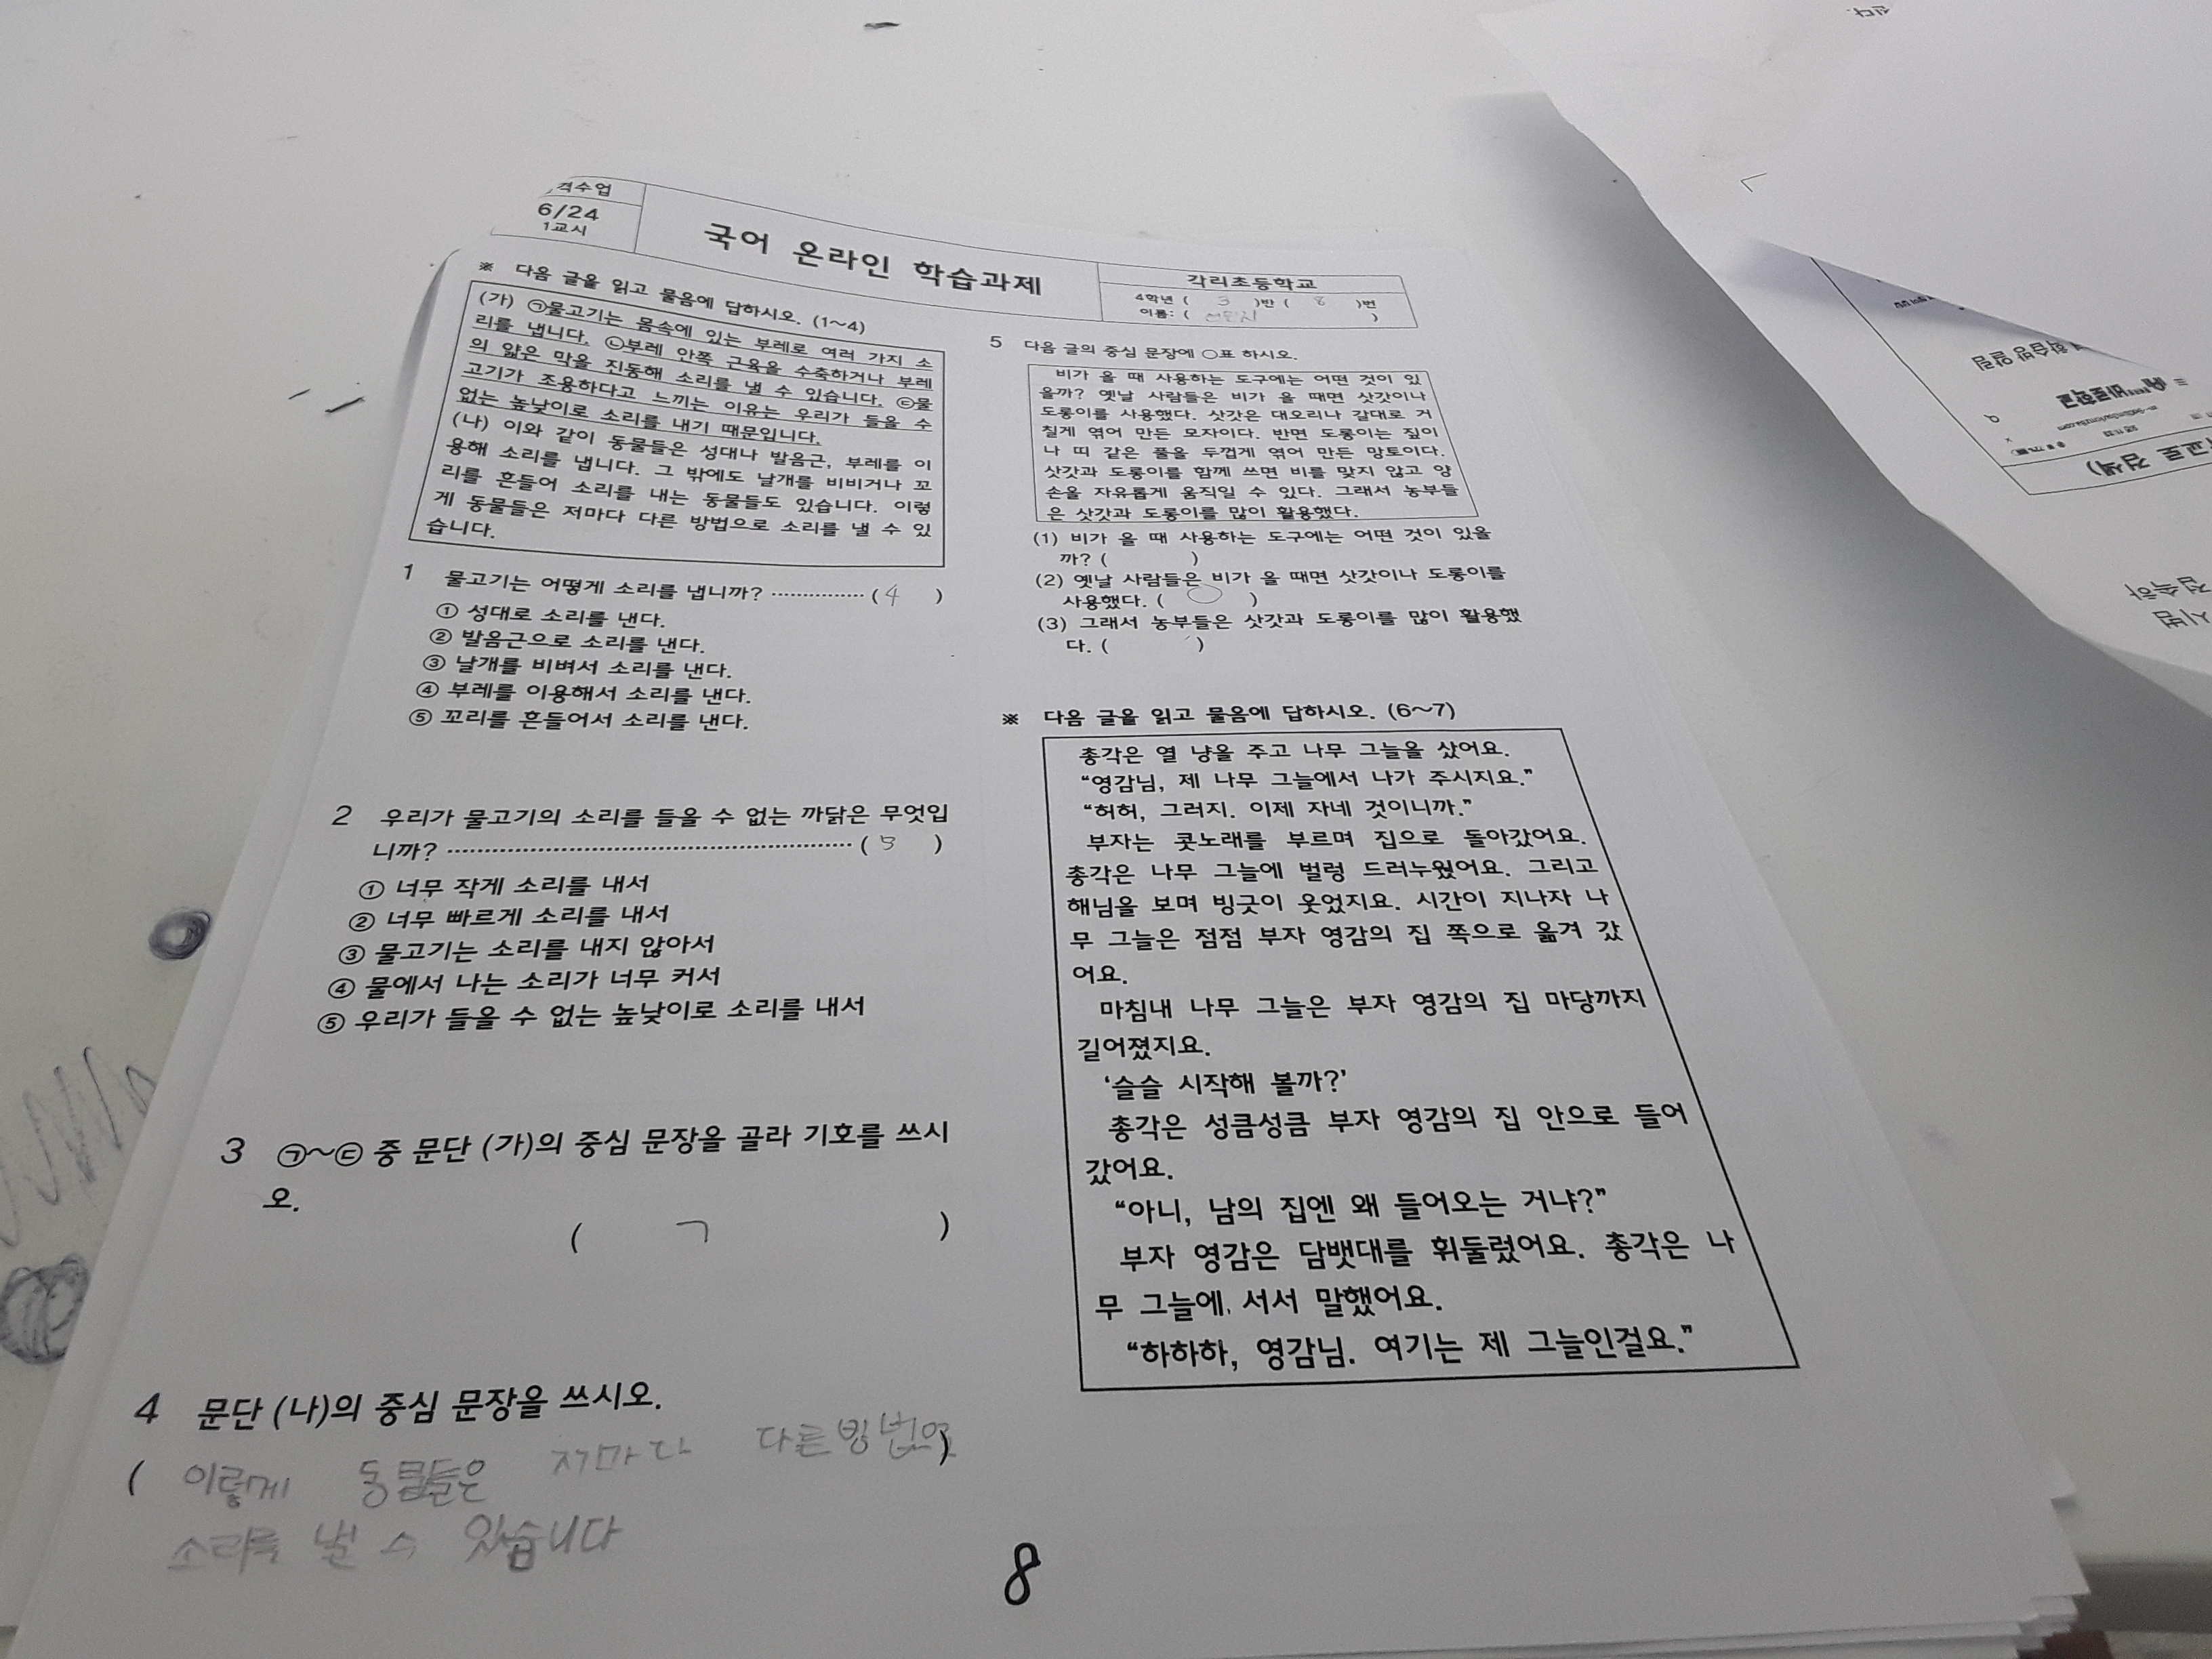 격수업
6/24
1교시
국어 온라인 학습과제
각리초등학교
4학년 ( 3 )반 ( 8 )번
이름: ( )
※ 다음 글을 읽고 물음에 답하시오. (1~4)
(가) ㉠물고기는 몸속에 있는 부레로 여러 가지 소
리를 냅니다. ㉡부레 안쪽 근육을 수축하거나 부레
의 얇은 막을 진동해 소리를 낼 수 있습니다. ㉢물
고기가 조용하다고 느끼는 이유는 우리가 들을 수
없는 높낮이로 소리를 내기 때문입니다.
(나) 이와 같이 동물들은 성대나 발음근, 부레를 이
용해 소리를 냅니다. 그 밖에도 날개를 비비거나 꼬
리를 흔들어 소리를 내는 동물들도 있습니다. 이렇
게 동물들은 저마다 다른 방법으로 소리를 낼 수 있
습니다.
1 물고기는 어떻게 소리를 냅니까? ··············· ( 4 )
① 성대로 소리를 낸다.
② 발음근으로 소리를 낸다.
③ 날개를 비벼서 소리를 낸다.
④ 부레를 이용해서 소리를 낸다.
⑤ 꼬리를 흔들어서 소리를 낸다.
2 우리가 물고기의 소리를 들을 수 없는 까닭은 무엇입
니까? ······················································· ( )
① 너무 작게 소리를 내서
② 너무 빠르게 소리를 내서
③ 물고기는 소리를 내지 않아서
④ 물에서 나는 소리가 너무 커서
⑤ 우리가 들을 수 없는 높낮이로 소리를 내서
3 ㉠~㉢ 중 문단 (가)의 중심 문장을 골라 기호를 쓰시
오.
( ㄱ )
4 문단 (나)의 중심 문장을 쓰시오.
( 이렇게 동물들은 저마다 다른방법으로 )
소리를 낼 수 있습니다
5 다음 글의 중심 문장에 ○표 하시오.
비가 올 때 사용하는 도구에는 어떤 것이 있
을까? 옛날 사람들은 비가 올 때면 삿갓이나
도롱이를 사용했다. 삿갓은 대오리나 갈대로 거
칠게 엮어 만든 모자이다. 반면 도롱이는 짚이
나 띠 같은 풀을 두껍게 엮어 만든 망토이다.
삿갓과 도롱이를 함께 쓰면 비를 맞지 않고 양
손을 자유롭게 움직일 수 있다. 그래서 농부들
은 삿갓과 도롱이를 많이 활용했다.
(1) 비가 올 때 사용하는 도구에는 어떤 것이 있을
까? ( )
(2) 옛날 사람들은 비가 올 때면 삿갓이나 도롱이를
사용했다. ( ○ )
(3) 그래서 농부들은 삿갓과 도롱이를 많이 활용했
다. ( )
※ 다음 글을 읽고 물음에 답하시오. (6~7)
총각은 열 냥을 주고 나무 그늘을 샀어요.
“영감님, 제 나무 그늘에서 나가 주시지요.”
“허허, 그러지. 이제 자네 것이니까.”
부자는 콧노래를 부르며 집으로 돌아갔어요.
총각은 나무 그늘에 벌렁 드러누웠어요. 그리고
해님을 보며 빙긋이 웃었지요. 시간이 지나자 나
무 그늘은 점점 부자 영감의 집 쪽으로 옮겨 갔
어요.
마침내 나무 그늘은 부자 영감의 집 마당까지
길어졌지요.
‘슬슬 시작해 볼까?’
총각은 성큼성큼 부자 영감의 집 안으로 들어
갔어요.
“아니, 남의 집엔 왜 들어오는 거냐?”
부자 영감은 담뱃대를 휘둘렀어요. 총각은 나
무 그늘에 서서 말했어요.
“하하하, 영감님. 여기는 제 그늘인걸요.”
8
학습방 알림
바로학교
교로 검색)
접속하